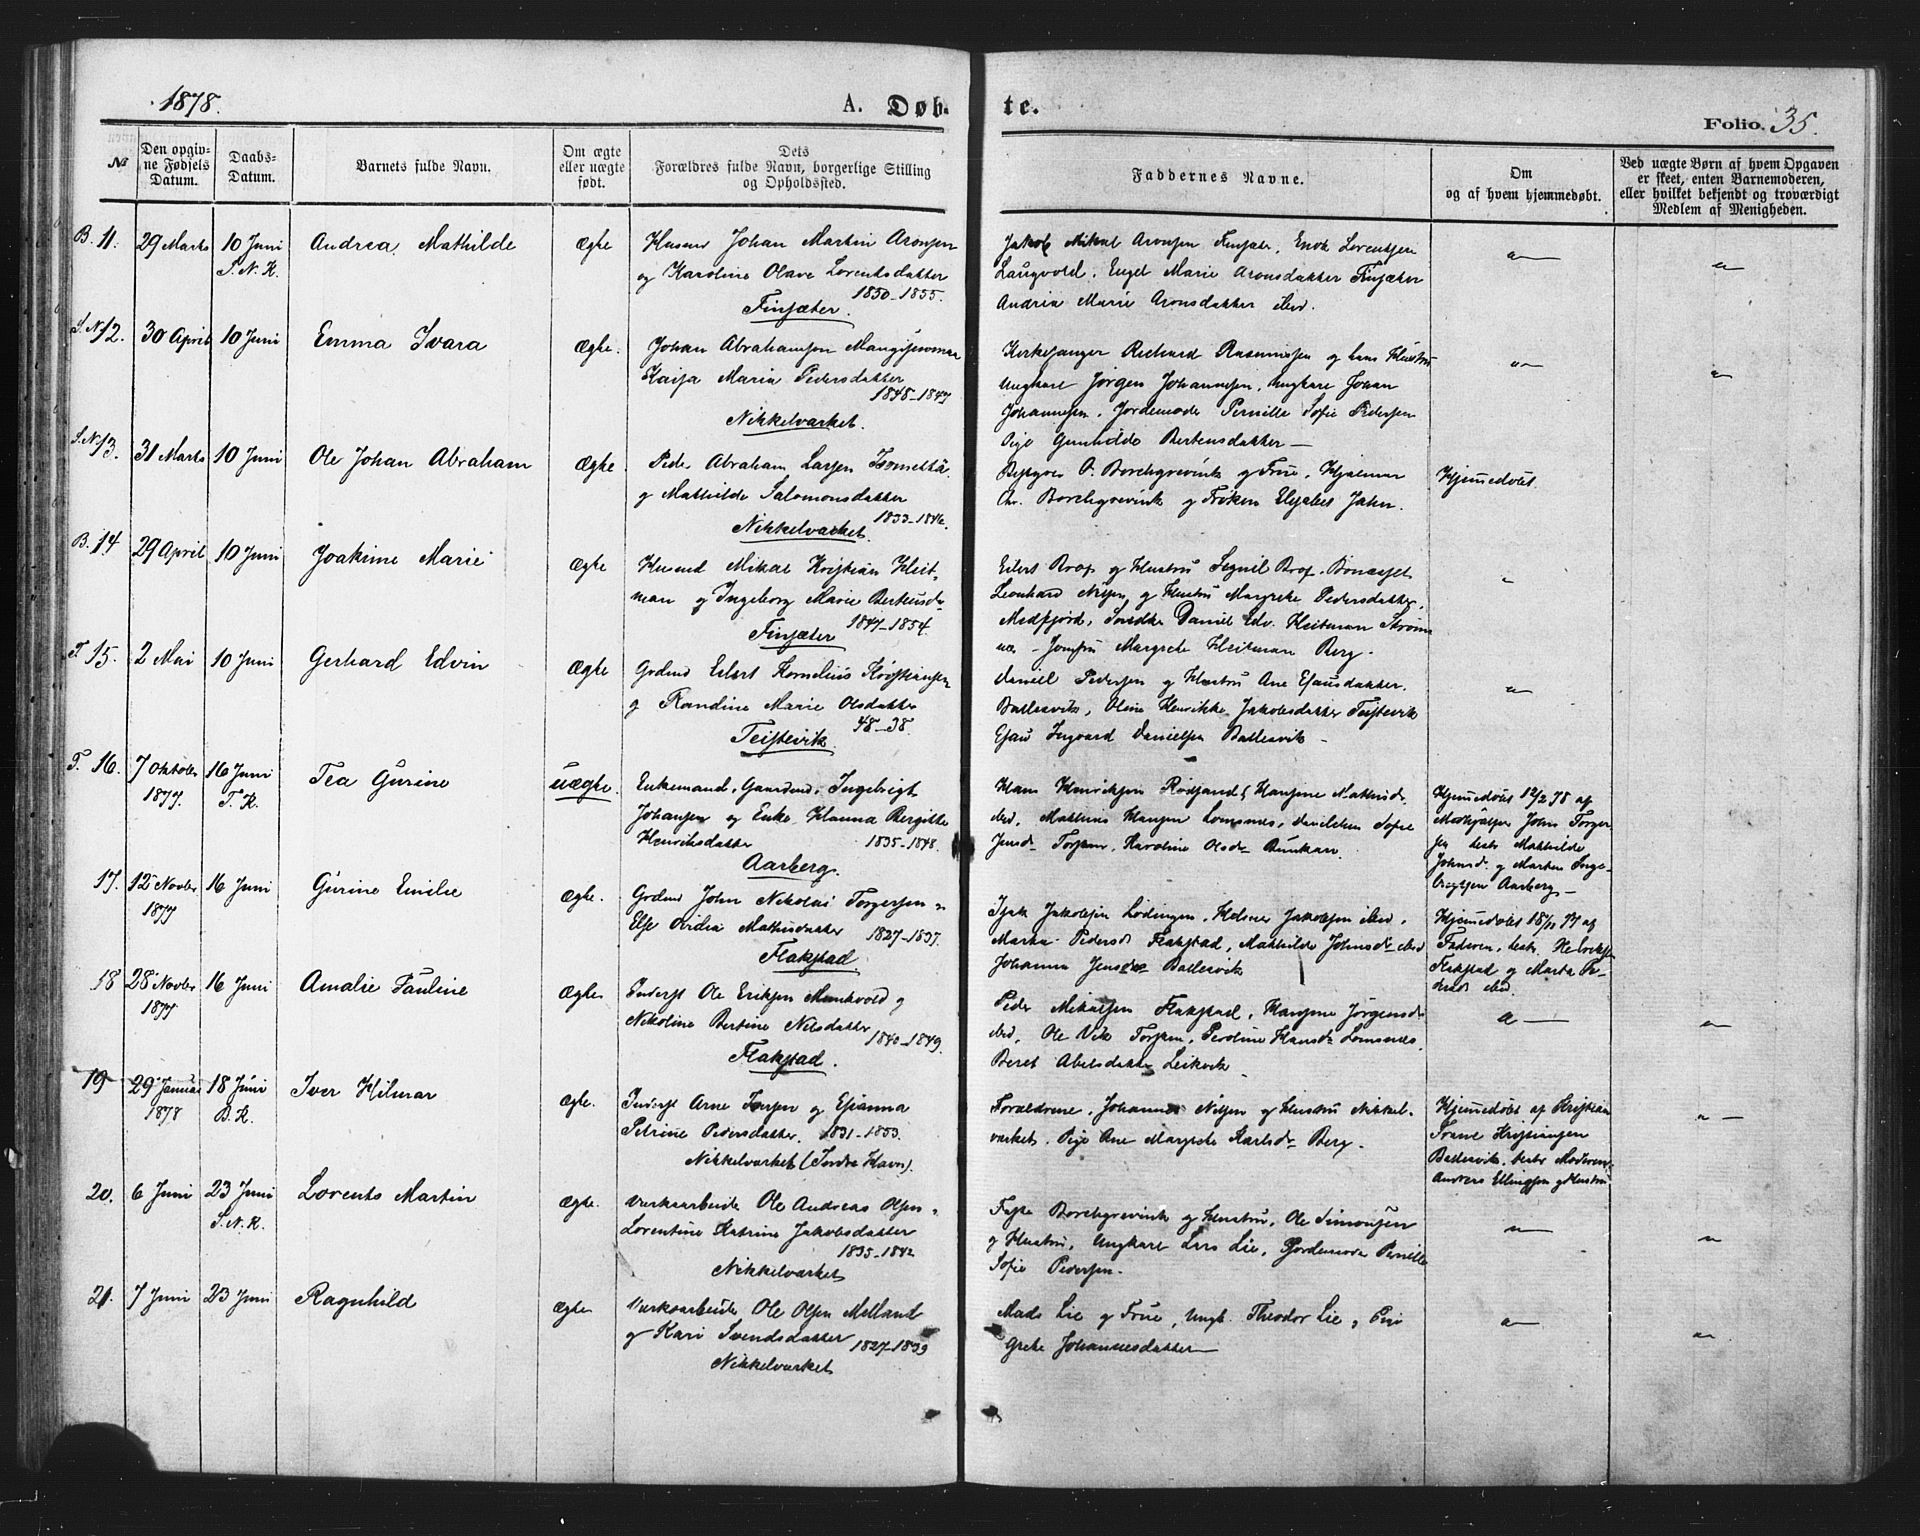 1878.
A. Døb-
te.
Folio. 35.
№
Den opgiv-
ne Fødsels
Datum.
Daabs-
Datum.
Barnets fulde Navn.
Om ægte
eller uægte
født.
Dets
Forældres fulde Navn, borgerlige Stilling
og Opholdssted.
Faddernes Navne.
Om
og af hvem hjemmedøbt.
Ved uægte Børn af hvem Opgaven
er skeet, enten Barnemoderen,
eller hvilket bekjendt og troværdigt
Medlem af Menigheden.
B. 11. 29 Marts 10 Juni Andrea Mathilde Ægte Husmd Johan Martin Aronsen
S. N. K. og Karoline Olave Lorentsdatter
1850-1855.
Finsæter.
Jakob Mikal Aronsen Finsæter, Enok Lorentsen
Laugvold, Engel Marie Aronsdatter Finsæter
Andrea Marie Aronsdatter ibid.
S. N. 12. 30 April 10 Juni Emma Ivara Ægte. Johan Abrahamsen
Kaisa Maria Pedersdatter
1848-1847
Nikkelværket.
Kirkesanger Richard Rasmussen og hans Hustru
Ungkarl Jørgen Johannesen, Ungkarl Johan
Johannesen, Jordemoder Pernille Sofie Pedersen
Pige Gunhilde Bertensdatter —
S. N. 13. 31 Marts 10 Juni Ole Johan Abraham Ægte. Peder Abraham Larsen
og Mathilde Salomonsdatter
1833-1846.
Nikkelværket.
O. Borchgrevink og Frue, Hjalmar
Chr. Borchgrevink og Frøken Elisabet Jahn.
Hjemmedøbt.
B. 14 29 April 10 Juni Joakime Marie Ægte Husmd Mikal Kristian Heit-
man og Ingeborg Marie Berteusd.
1847-1854.
Finsæter
Eilert Brox og Hustru Brox,
Leonhard Nilsen og Hustru Margrete Pedersdatter,
Medfjord, Daniel Edv. Heitman
Jomfru Margrete Heitman Berg.
T. 15. 2 Mai 10 Juni Gerhard Edvin Ægte Grdmd Eilert Kornelius Kristiansen
og Randine Marie Olsdatter
48-38.
Teistevik.
Daniel Pedersen og Hustru Ane Esausdatter
Ballesvik, Oline Henrikke Jakobsdatter Teistevik
Esau Ingvard Danielsen Ballesvik —
T. 16. 7 Oktober 16 Juni Tea Gurine uægte. Enkemand, Gaardmd. Ingebrigt
1877. T. K. Johansen og Enke Hanna Bergitte
Henriksdatter 1835-1848.
Aarberg.
Hans Henriksen Rødsand, Hansine
ibid, Hansen Lomsnes, Sofie
Jensd. Torsken, Karoline Olsd.
Hjemmedøbt 12/2 78 af
Medhjælper Johns Torger-
sen, testr Mathilde
Johnsd. og Marten Inge-
brigtsen Aarberg —
17. 12 Novbr 16 Juni Gurine Emilie Ægte. Grdmd John Nikolai Torgersen
1877 Else Ovidia Mathisdatter 1827-1837.
Flakstad
Isak Jakobsen Lødingen, Jakobsen ibid,
Marta Pedersd Flakstad, Mathilde Johnsd ibid
Johanna Jensd Ballesvik
Hjemmedøbt 18/11 77 af
Faderen, testr
Flakstad og Marta Pe-
dersd ibid.
18 28 Novbr 16 Juni Amalie Pauline Ægte Inderst Ole Eriksen Munkvold og
1877 Nikoline Bertine Nilsdatter
1840-1849.
Flakstad.
Peder Mikalsen Flakstad, Hansine Jørgensd
ibid, Ole Vik Torsken, Peroline Hansd Lomsnes,
Beret Abelsdatter Leikvik
19 29 Januar 18 Juni Iver Hilmar Ægte. Inderst Arne Iversen og Esianna
1878 B. K. Petrine Pedersdatter. 1831-1853.
Nikkelværket (Indre Havn).
Forældrene, Johannes Nilsen og Hustru Nikkel-
værket, Pige Ane Margrete Karlsd. Berg.
Hjemmedøbt af Kristian
Kristiansen
Ballesvik, testr Moderen,
Anders Ellingsen og Hustru
20. 6 Juni 23 Juni Lorents Martin Ægte. Værksarbeider Ole Andreas Olsen
S. N. K. Lorentine Katrine Jakobsdatter
1835-1842
Nikkelværket
Borchgrevink og Hustru, Ole Simonsen
og Hustru, Ungkarl Lars Lie, Jordemoder Pernille
Sofie Pedersen.
21. 7 Juni 23 Juni Ragnhild Ægte Værksarbeider Ole Olsen Melland
og Kari Svendsdatter
1827-1839
Nikkelværket
Mads Lie og Frue, Ungk. Theodor Lie, Pige
Grete Johannesdatter —